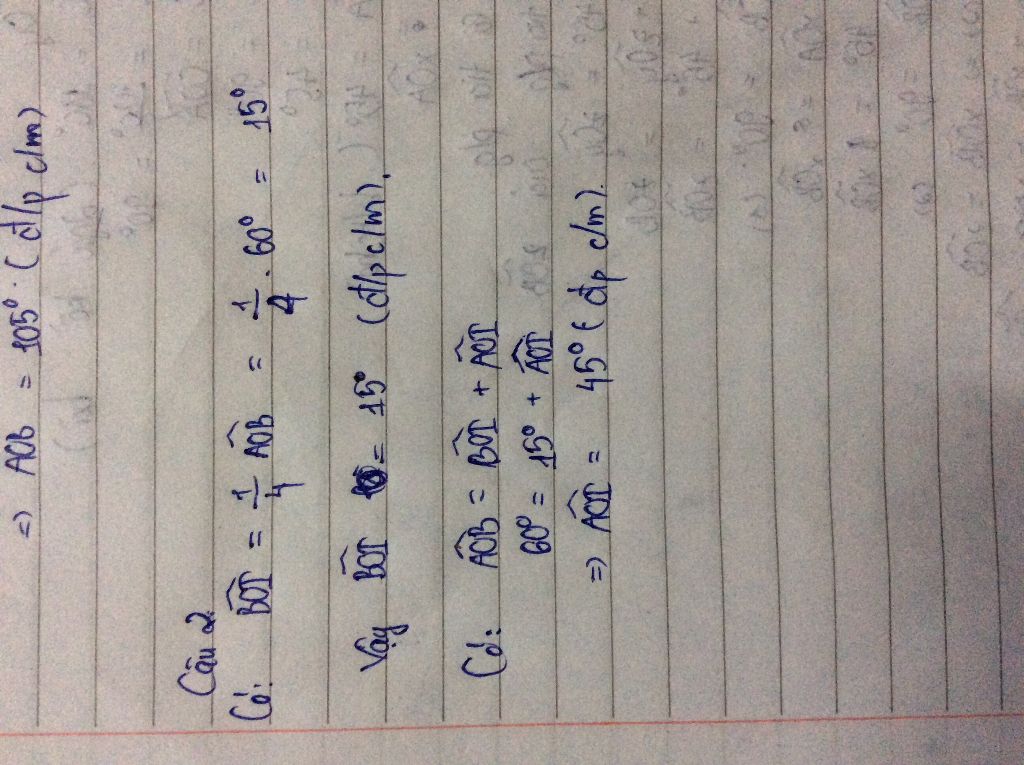 => AOB = 105° . ( đ/p c/m)
Câu 2.
Có: B̂OI = 1/4 ÂOB = 1/4 . 60° = 15°
Vậy B̂OI = 15° (đ/p c/m).
Có: ÂOB = B̂OI + ÂOI
60° = 15° + ÂOI
=> ÂOI = 45° ( đp c/m).